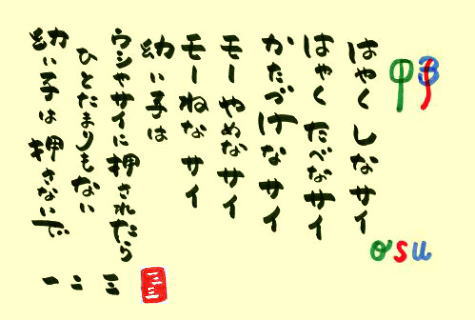 osu
はやく しなサイ
はやく たべなサイ
かたづけなサイ
モー やめなサイ
モーねな サイ
幼い子は
ウシやサイに押されたら
ひとたまりもない
幼い子は 押さないで
一二三